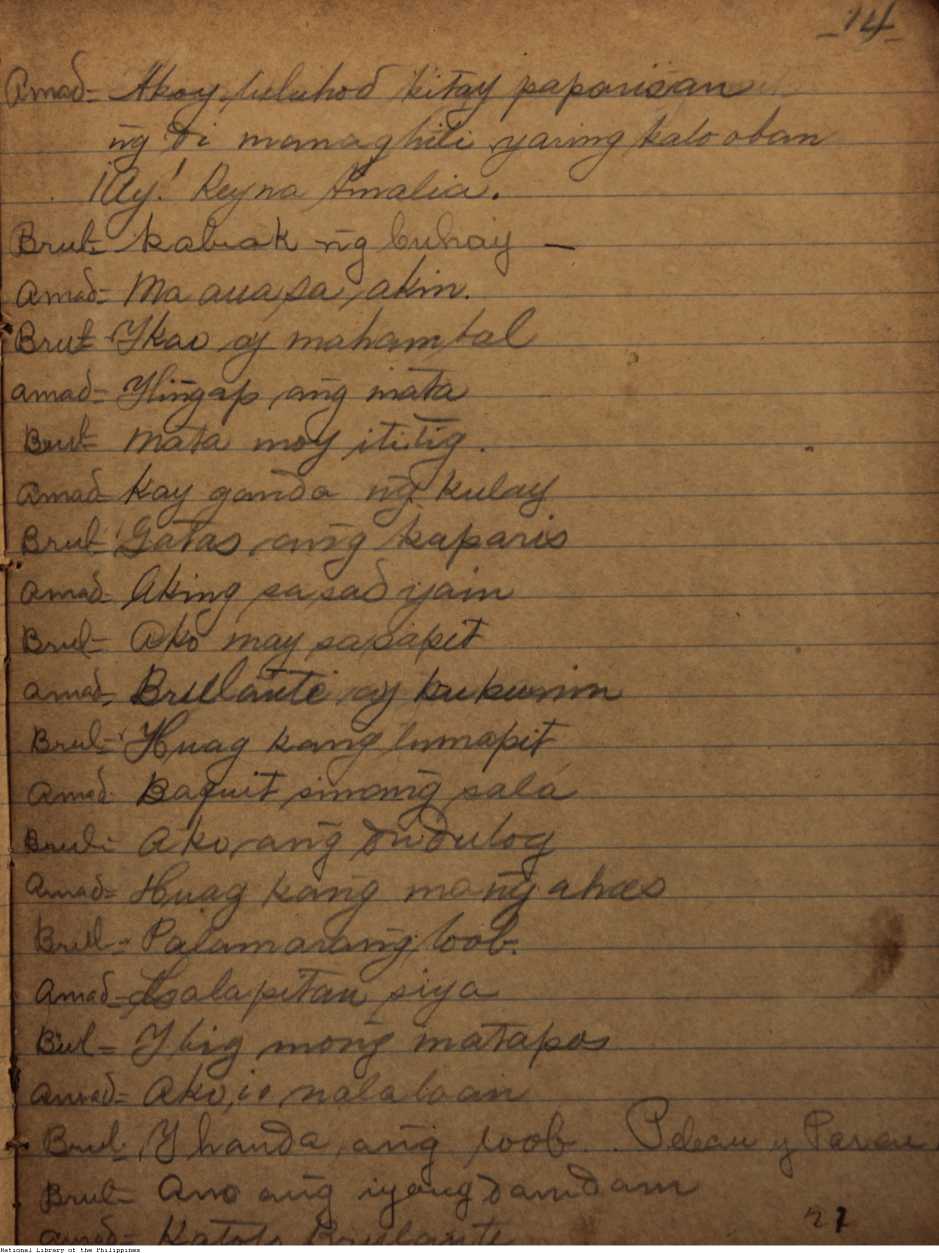 -14-
Amad= Akoy luluhod kitay paparisan
ng di managhili yaring kalooban
¡Ay! Reyna Amalia.
Brul= kabiak ng buhay —
Amad= Ma aua sa akin.
Brul= Ykao ay mahambal
amad= Ylingap ang mata
Brul= mata moy ititig.
Amad= kay ganda ng kulay
Brul= Gatas ang kaparis
amad= Aking sasadyain
Brul= Ako may sasapit
amad= Brillante ay kukunin
Brul= Huag kang lumapit
Amad= Baquit sinong sala
Brul= Ako ang dudulog
Amad= Huag kang mang ahas
Brill= Palamarang loob.
Amad= Lalapitan siya
Brul= Ybig mong matapos
Amad= Ako, io nalalaan
Brul= Yhanda ang loob Pelean y
Brul= Ano ang iyong damdam
amad= Brillante
27
National Library of the Philippines